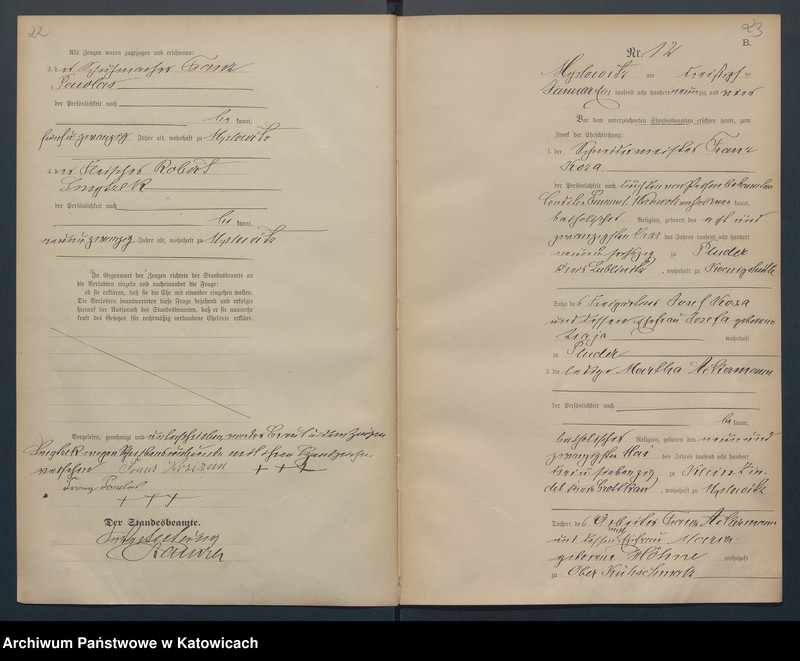 22
Als Zeugen waren zugezogen und erschienen:
3. der Schuhmacher Franz
Pawlas
der Persönlichkeit nach
be kannt,
fünfundzwanzig Jahre alt, wohnhaft zu Myslowitz
4. der Fleischer Robert
der Persönlichkeit nach
be kannt,
neunundzwanzig Jahre alt, wohnhaft zu Myslowitz
In Gegenwart der Zeugen richtete der Standesbeamte an
die Verlobten einzeln und nacheinander die Frage:
ob sie erklären, daß sie die Ehe mit einander eingehen wollen.
Die Verlobten beantworteten diese Frage bejahend und erfolgte
hierauf der Ausspruch des Standesbeamten, daß er sie nunmehr
kraft des Gesetzes für rechtmäßig verbundene Eheleute erkläre.
Vorgelesen, genehmigt und unterschrieben, von der Braut u. dem Zeugen
wegen Schreibensunkunde mit ihren Handzeichen
versehen Franz +++
Franz Pawlas
+++
Der Standesbeamte.
In Vertretung
23
B.
Nr. 12
Myslowitz am
Januar tausend acht hundert neunzig und
Vor dem unterzeichneten Standesbeamten erschien heute, zum
Zweck der Eheschließung:
1. der Schneidermeister Franz
Koza
der Persönlichkeit nach
kannt,
katholischer Religion, geboren den acht und
zwanzigsten des Jahres tausend acht hundert
neun u. sechzig zu Pluder
Kreis Lublinitz, wohnhaft zu Koenigshütte
Sohn des Josef Koza
und dessen Ehefrau Josefa geborene
wohnhaft
zu Pluder
2. die ledige Martha Ackermann
der Persönlichkeit nach
be kannt,
katholischer Religion, geboren den neun und
zwanzigsten Mai des Jahres tausend acht hundert
drei u. siebenzig zu
Kreis Grottkau, wohnhaft zu Myslowitz
Tochter des Arbeiter Franz Ackermann
und dessen Ehefrau Maria
geborene Höhne wohnhaft
zu Ober Kühschmalz
Archiwum Państwowe w Katowicach